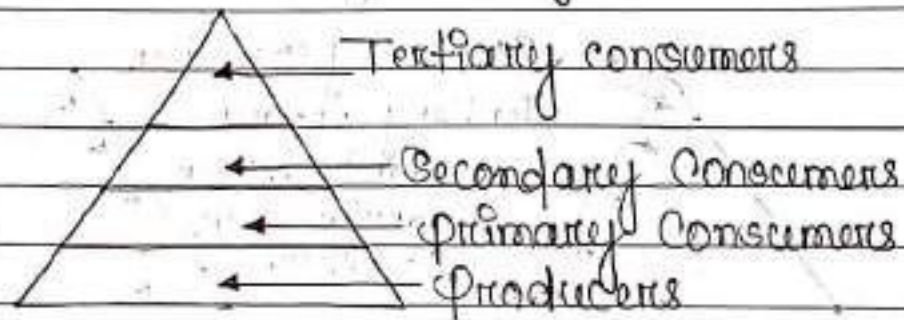 Tertiary consumers
Secondary Consumers
Primary Consumers
Producers